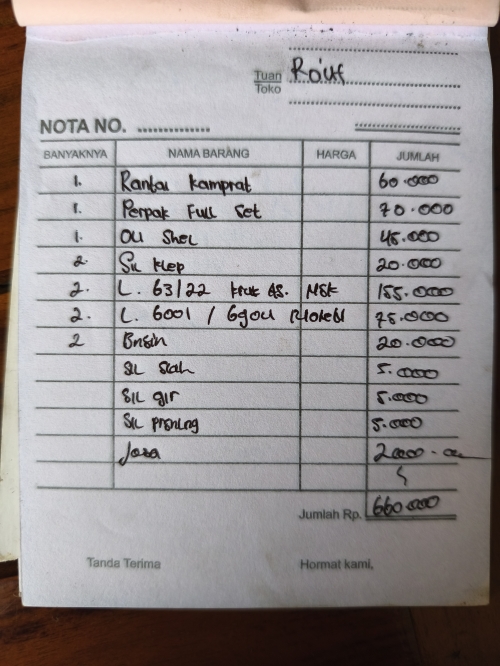 Tuan Ro'uf
Toko
NOTA NO. ..............
BANYAKNYA NAMA BARANG HARGA JUMLAH
1. Rantai Kamprat 60.000
1. Perpak Full Set 70.000
1. Oli Shel 45.000
2 Sil klep 20.000
2. L. 63/22 kruk AS. NSK 155.000
2. L. 6001 / 6904 75.000
2 Bnsin 20.000
SIL Sah 5.000
SIL gir 5.000
SIL prsnlng 5.000
Jasa
Jumlah Rp. 660.000
Tanda Terima Hormat kami,